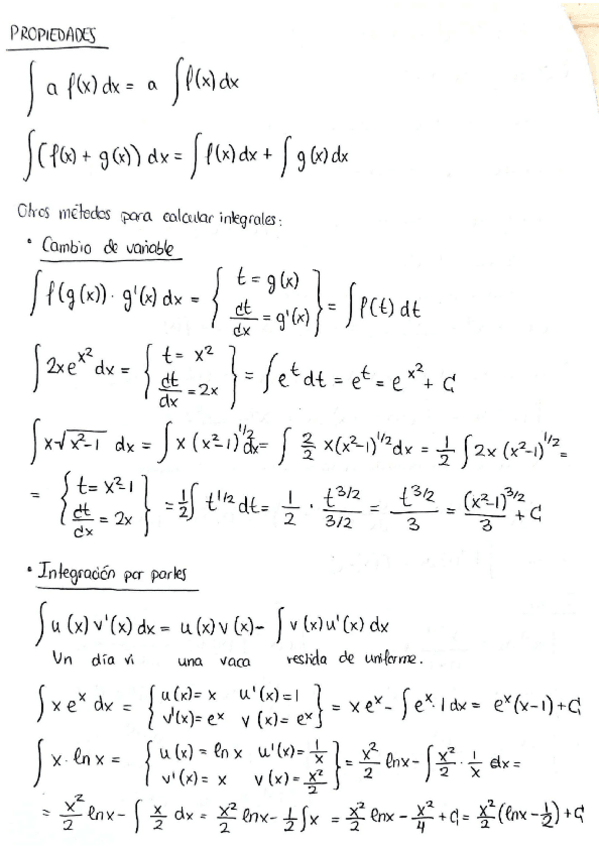 PROPIEDADES
∫ a f(x) dx = a ∫ f(x) dx
∫ (f(x) + g(x)) dx = ∫ f(x) dx + ∫ g(x) dx
Otros métodos para calcular integrales:
• Cambio de variable
∫ f(g(x)) · g'(x) dx = { t = g(x) ; dt/dx = g'(x) } = ∫ f(t) dt
∫ 2xe^(x²) dx = { t = x² ; dt/dx = 2x } = ∫ e^t dt = e^t = e^(x²) + C
∫ x√(x²-1) dx = ∫ x (x²-1)^(1/2) dx = ∫ 2/2 x(x²-1)^(1/2) dx = 1/2 ∫ 2x (x²-1)^(1/2) =
= { t = x²-1 ; dt/dx = 2x } = 1/2 ∫ t^(1/2) dt = 1/2 · t^(3/2)/(3/2) = t^(3/2)/3 = (x²-1)^(3/2)/3 + C
• Integración por partes
∫ u(x) v'(x) dx = u(x) v(x) - ∫ v(x) u'(x) dx
Un día vi una vaca vestida de uniforme.
∫ x e^x dx = { u(x) = x u'(x) = 1 ; v'(x) = e^x v(x) = e^x } = x e^x - ∫ e^x · 1 dx = e^x (x-1) + C
∫ x · ln x = { u(x) = ln x u'(x) = 1/x ; v'(x) = x v(x) = x²/2 } = x²/2 ln x - ∫ x²/2 · 1/x dx =
= x²/2 ln x - ∫ x/2 dx = x²/2 ln x - 1/2 ∫ x = x²/2 ln x - x²/4 + C = x²/2 (ln x - 1/2) + C